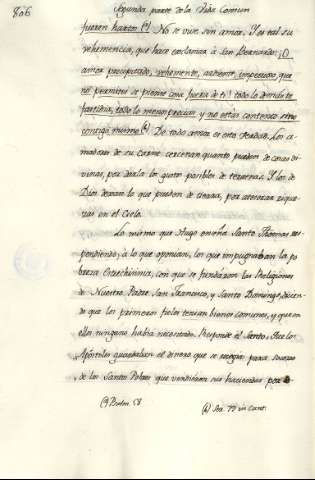 806
Segunda parte de la Vida Comun
No se vive sin amar. Y es tal su
vehemencia, que hace exclamar à San Bernardo: ¡O
amor precipitado, vehemente, ardiente, impetuoso, que
no permites se piense cosa fuera de ti! todo lo
fastidia, todo lo menosprecias y no estas contento sino
contigo mismo! De todo amor es esto verdad. Los
amadores de su carne cercenan quanto pueden de cosas di-
vinas, por darla los gustos posibles de terrenas. Y los de
Dios dexan lo que pueden de tierra, por atesorar rique-
zas en el Cielo.
Lo mismo que Hugo enseña Santo Thomas res-
pondiendo, à lo que oponian, los que impugnaban la po-
breza con que se fundaron las Religiones
de Nuestro Padre San Francisco, y Santo Domingo, dicien-
do que los primeros fieles tenian bienes comunes, y que en
ellos ninguno havia necesitado. Responde el Santo, que los
Apostoles guardaban el dinero que se recogia para socorro
de los Santos Pobres que vendieron sus haciendas por
(a) Ser. 79 in Cant.